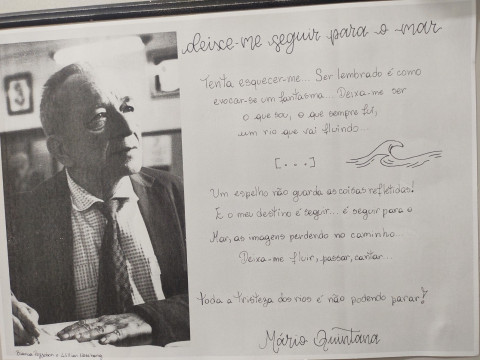 deixe-me seguir para o mar
Tenta esquecer-me... Ser lembrado é como
evocar-se um fantasma... Deixa-me ser
o que sou, o que sempre fui,
um rio que vai fluindo...
[...]
Um espelho não guarda as coisas refletidas!
E o meu destino é seguir... é seguir para o
Mar, as imagens perdendo no caminho...
Deixa-me fluir, passar, cantar...
toda a tristeza dos rios é não podendo parar!
Mário Quintana